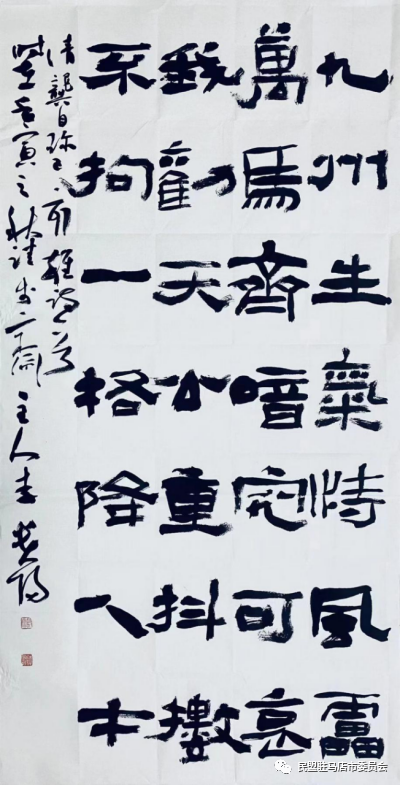 九州生氣恃風雷
萬馬齊喑究可哀
我勸天公重抖擻
不拘一格降人才
清龔自珍 雜詩一首
時在壬寅之秋 主人李
民盟驻马店市委员会